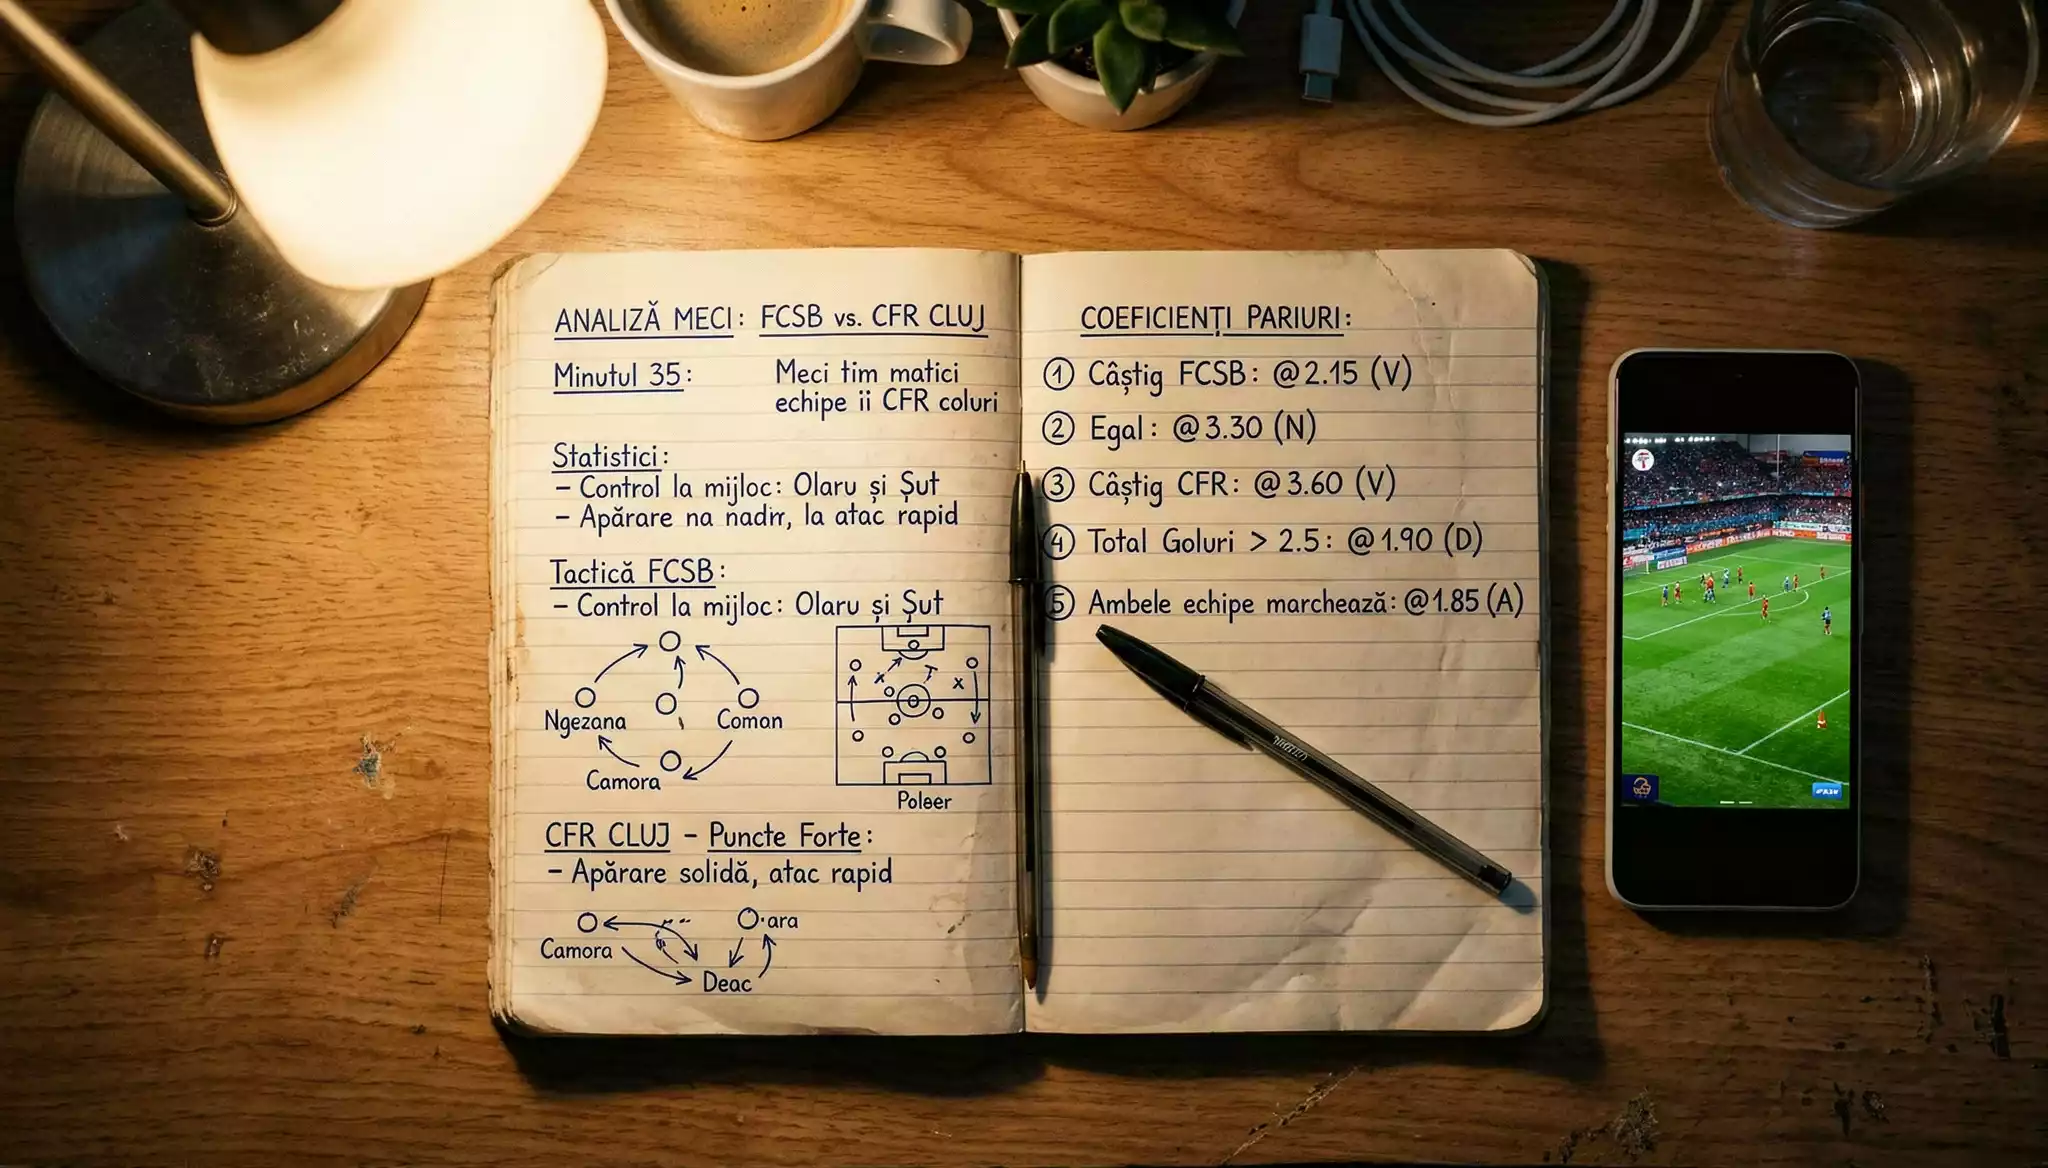 ANALIZĂ MECI: FCSB vs. CFR CLUJ
Minutul 35:
Meci tim matici
echipe ii CFR coluri
Statistici:
– Control la mijloc: Olaru și Șut
– Apărare na nadır, la atac rapid
Tactică FCSB:
– Control la mijloc: Olaru și Șut
Ngezana
Coman
Camora
x
T
x
Poleer
CFR CLUJ – Puncte Forte:
– Apărare solidă, atac rapid
Camora
ara
Deac
COEFICIENȚI PARIURI:
1 Câștig FCSB: @2.15 (V)
2 Egal: @3.30 (N)
3 Câștig CFR: @3.60 (V)
4 Total Goluri > 2.5: @1.90 (D)
5 Ambele echipe marchează: @1.85 (A)